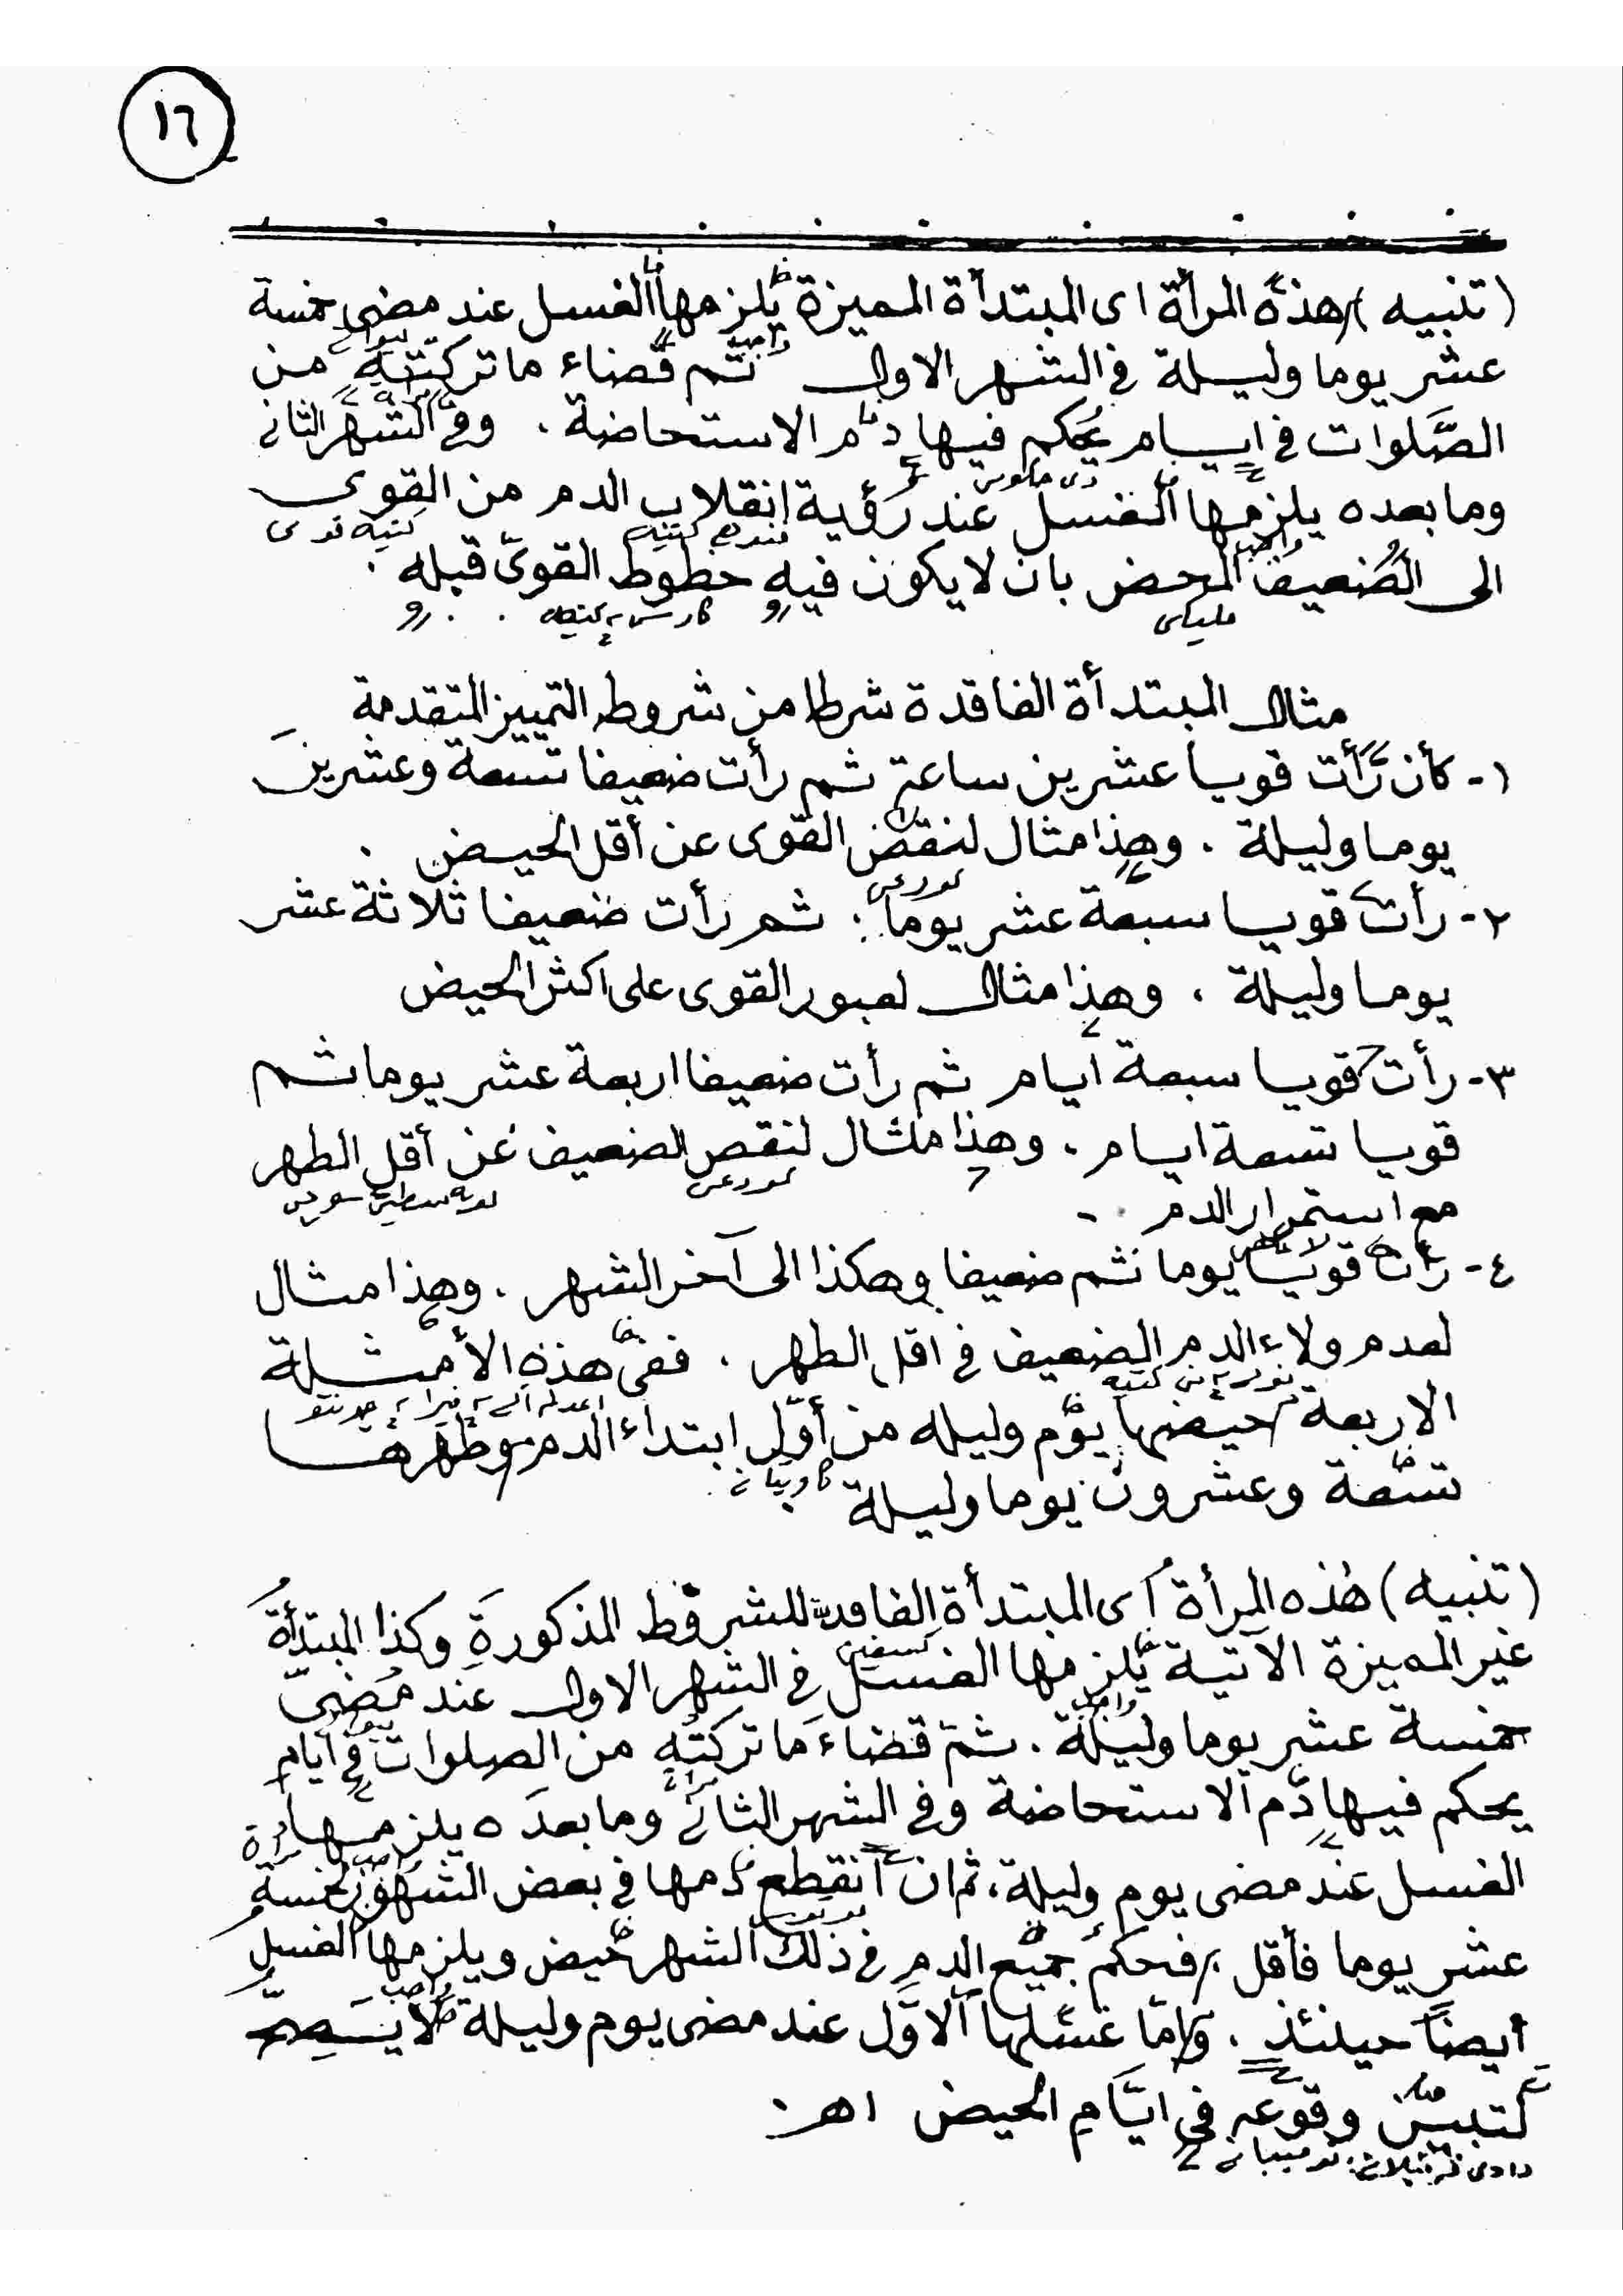 ١٦
(تنبيه) هذه المرأة اى المبتدأة المميزة يلزمها الغسل عند مضى خمسة
عشر يوما وليلة فى الشهر الاول ثم قضاء ما تركته من
الصَّلوات فى ايام يحكم فيها دم الاستحاضة . وفى الشهر الثانى
وما بعده يلزمها الغسل عند رؤية انقلاب الدم من القوى
الى الضعيف المحض بان لا يكون فيه خطوط القوىّ قبله .
مثال المبتدأة الفاقدة شرطا من شروط التمييز المتقدمة
١- كأن رَأَت قويا عشرين ساعة ثم رأت ضعيفا تسعة وعشرينَ
يوما وليلة . وهذا مثال لنقص القوى عن أقل الحيض .
٢- رأت قويا سبعة عشر يوما : ثم رأت ضعيفا ثلاثة عشر
يوما وليلة . وهذا مثال لعبور القوى على اكثر الحيض
٣- رأت قويا سبعة ايام ثم رأت ضعيفا اربعة عشر يوما ثم
قويا تسعة ايام . وهذا مثال لنقص الضعيف عن أقل الطهر
مع استمرار الدم -
٤- رأت قويا يوما ثم ضعيفا وهكذا الى آخر الشهر . وهذا مثال
لعدم ولاء الدم الضعيف فى اقل الطهر . ففى هذه الأمثلة
الاربعة حيضها يوم وليله من أوّل ابتداء الدم وطهرها
تسعة وعشرون يوما وليلة
(تنبيه) هٰذه المرأة أى المبتدأة الفاقدة للشروط المذكورةِ وكذا المبتدأةُ
غير المميزة الآتية يلزمها الغسل فى الشهر الاول عند مُضىّ
خمسة عشر يوما وليلة . ثمّ قضاءَ ما تركته من الصلوات فى ايام
يحكم فيها دم الاستحاضة وفى الشهر الثانى وما بعدَه يلزمها
الغسل عند مضى يوم وليلة، ثم ان انقطع دمها فى بعض الشهور لخمسة
عشر يوما فأقل فحكم جميع الدم فى ذلك الشهر حيض ويلزمها الغسل
أيضًا حينئذ . وامّا غسلها الاوّل عند مضى يوم وليلة فلا يَصِحّ
لتبيّن وقوعه فى ايّام الحيض اهـ .